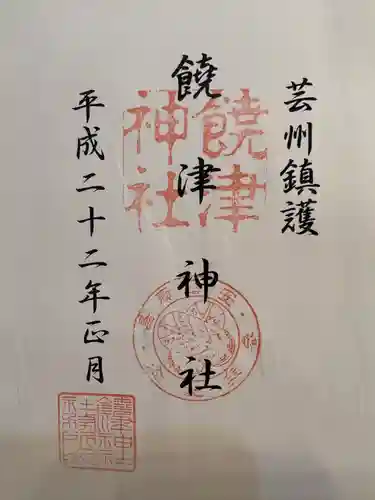 芸州鎮護
饒津神社
平成二十二年正月
饒津
神社